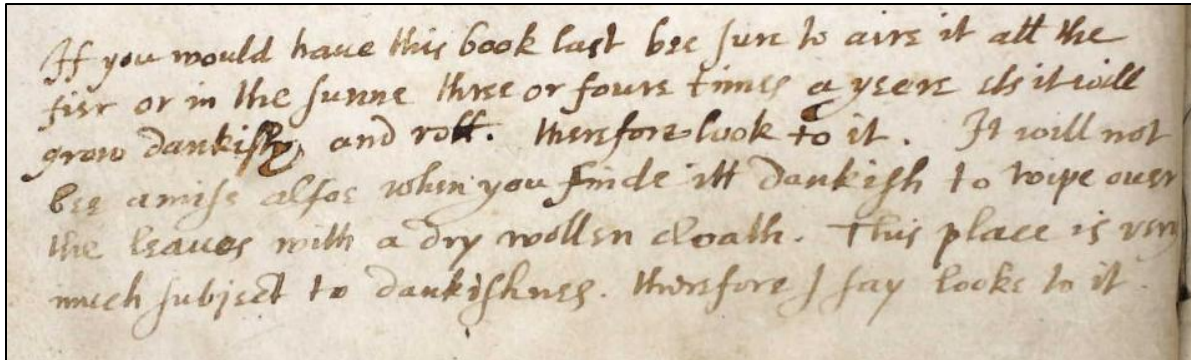 If you would haue this book last bee sure to aire it att the
fier or in the sunne three or foure times a yeere els it will
grow dankish and rott. therefore look to it. It will not
bee amisse alsoe when you finde itt dankish to wipe over
the leaues with a dry wollen cloath. This place is very
much subject to dankishnes. therefore I say looke to it.